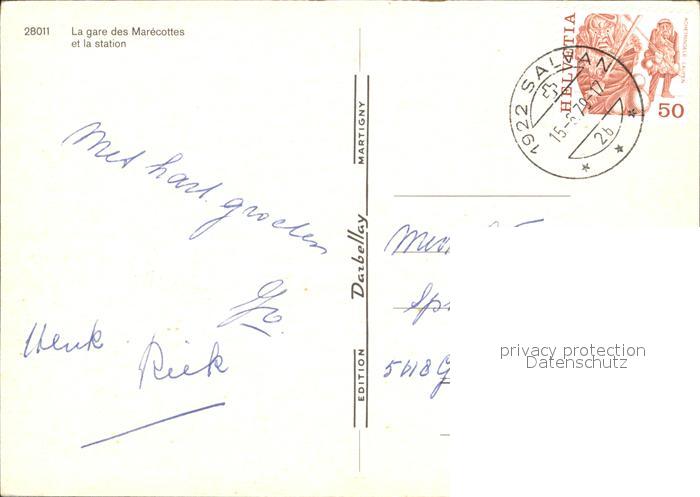 28011 La gare des Marécottes
et la station
HELVETIA
50
1922 SALVAN
15-
79-17
2b
MARTIGNY
Darbellay
EDITION
Met hart. groeten
Go.
Henk
Riek
privacy protection
Datenschutz